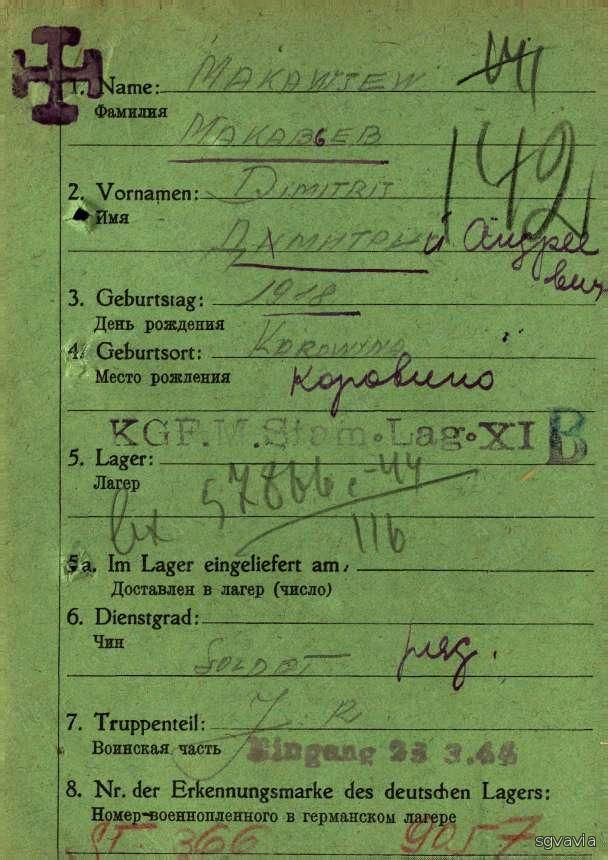 1. Name: MAKAWJEW
Фамилия
МАКАВЬЕВ
2. Vornamen: DIMITRIJ
142
Имя
Дмитрий Андрее
вич
3. Geburtstag: 1918
День рождения
4. Geburtsort: KOROWYNO
Место рождения Коровино
KGF.M.Stam.Lag.XI B
5. Lager:
Лагер
57866 e-44
11b
5a. Im Lager eingeliefert am,
Доставлен в лагер (число)
6. Dienstgrad:
Чин
SOLDAT ряд.
7. Truppenteil: J.R.
Воинская часть Eingang 23 3.44
8. Nr. der Erkennungsmarke des deutschen Lagers:
Номер военнопленного в германском лагере
ST. 366 9057
sgvavia